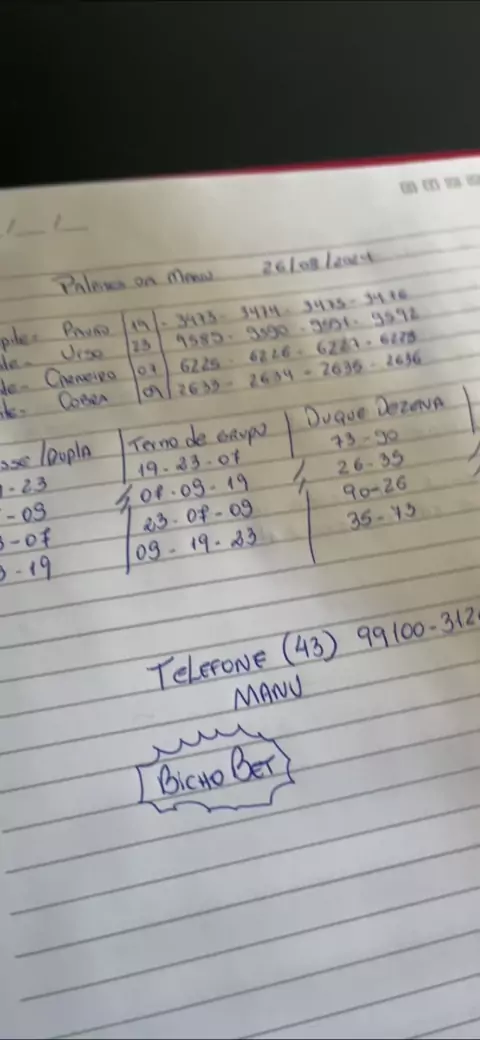 Palpites da Manu 26/08/2024
Pavão 19 - 3473 - 3474 - 3475 - 3476
Urso 23 9589 - 9590 - 9591 - 9592
Carneiro 07 6225 - 6226 - 6227 - 6228
Cobra 09 2633 - 2634 - 2635 - 2636
sse / Dupla Terno de Grupo Duque Dezena
- 23 19 - 23 - 07 73 - 90
- 09 07 - 09 - 19 26 - 35
- 07 23 - 07 - 09 90 - 26
- 19 09 - 19 - 23 35 - 73
TELEFONE (43) 99100 - 312
MANU
BICHO BET